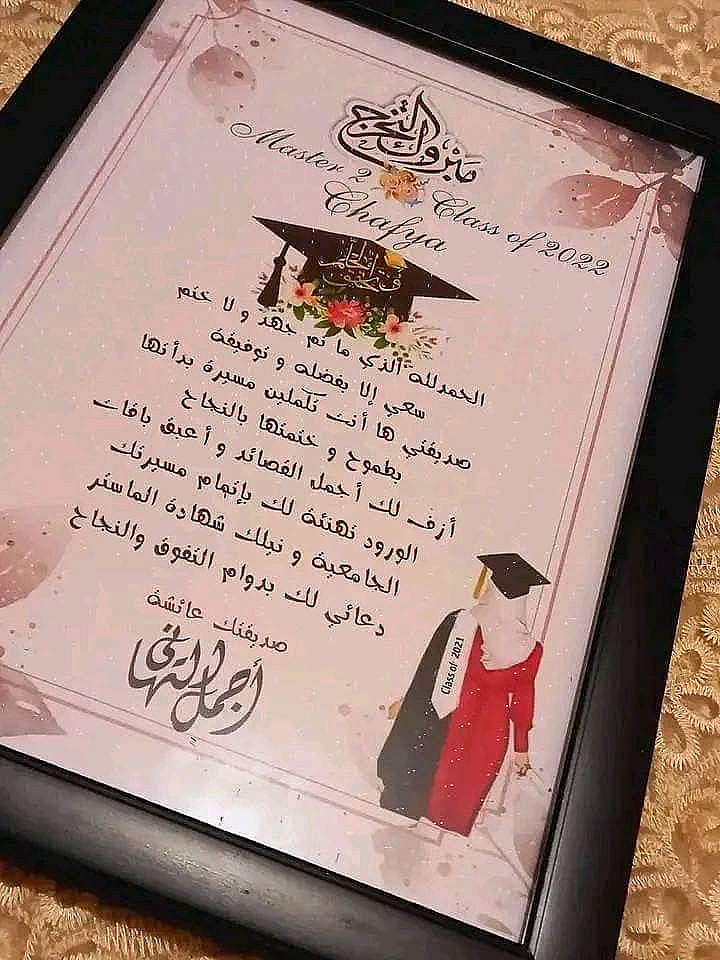 مبروك التخرج
Master 2 Class of 2022
Chafya
الحمدلله الذي ما تم جهد و لا ختم
سعي إلا بفضله و توفيقة
صديقتي ها أنت تكملين مسيرة بدأتها
بطموح و ختمتها بالنجاح
أزف لك أجمل القصائد و أعبق باقات
الورود تهنئة لك بإتمام مسيرتك
الجامعية و نيلك شهادة الماستر
دعائي لك بدوام التفوق والنجاح
صديقتك عائشة
أجمل التهاني
Class of 2021